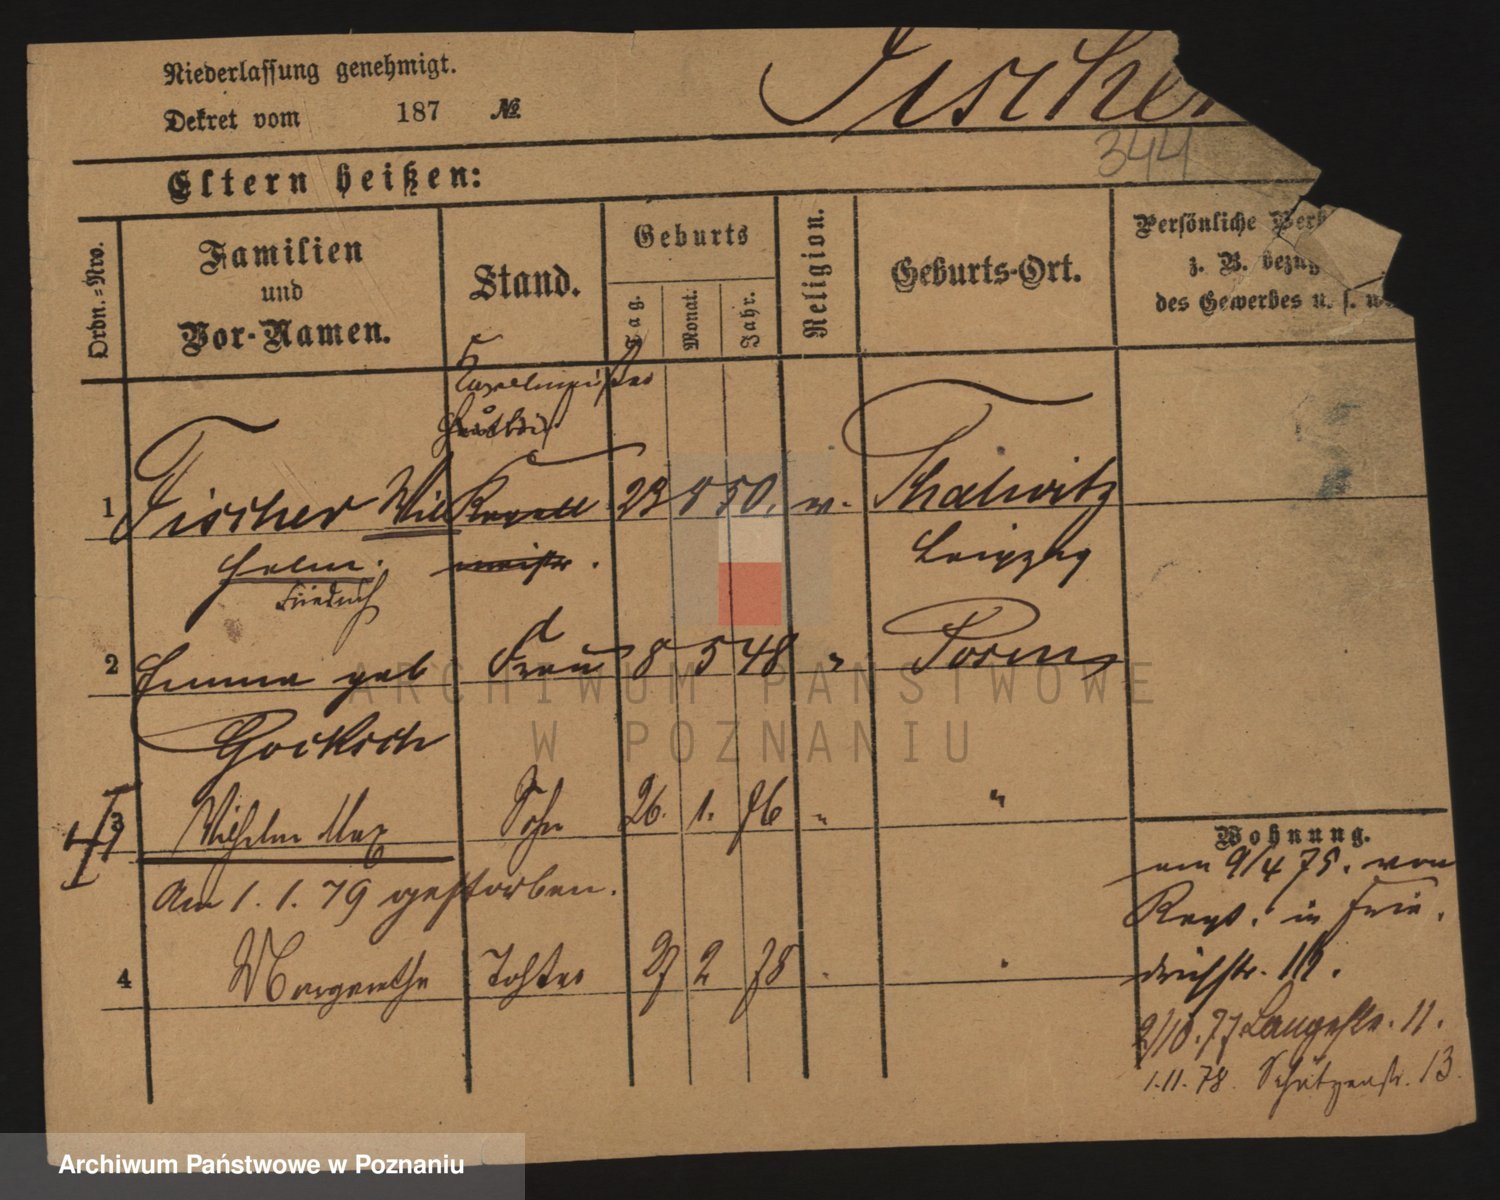 Niederlassung genehmigt.
Dekret vom 187 No
Fischer
344
Eltern heißen:
Ordn.=Nro.
Familien
und
Vor-Namen.
Stand.
Geburts
Tag.
Monat.
Jahr.
Religion.
Geburts-Ort.
Persönliche
z. B. bezüg
des Gewerbes u. s. w.
Kapellmeister
1 Fischer Wil Kapell 23 8 50. Thalwitz
helm. meister. Leipzig
Friedrich
2 Emma geb Frau 8 5 48 " Posen
Gocksch
3 Wilhelm Max Sohn 26. 1. 76 " "
Am 1. 1. 79 gestorben.
4 Margarethe Tochter 27 2 78
Wohnung.
am 9/4 75. von
in Frie,
drichstr. 11.
2/10. 77 Langestr. 11.
1.11.78. Schützenstr. 13.
ARCHIWUM PAŃSTWOWE
W POZNANIU
Archiwum Państwowe w Poznaniu